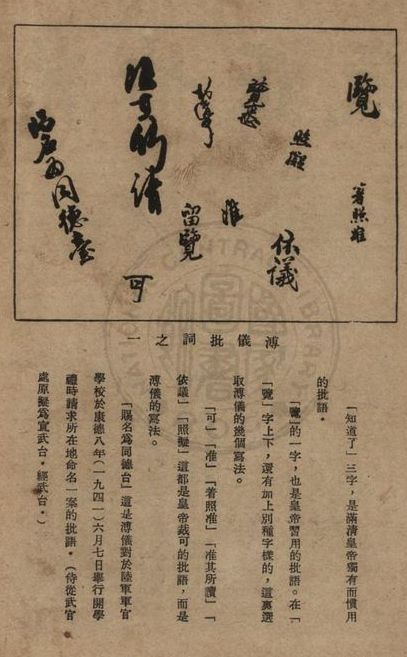 覽
著照准
覽悉
照擬
依議
知道了
准
留覽
准其所請
可
賜名為同德臺
溥儀批詞之一
「知道了」三字，是滿清皇帝獨有而慣用
的批語。
「覽」的一字，也是皇帝習用的批語。在「
「覽」字上下，還有加上別種字樣的，這裏選
取溥儀的幾個寫法。
「可」「准」「著照准」「准其所請」「
依議」「照擬」這都是皇帝裁可的批語，而是
溥儀的寫法。
「賜名爲同德台」這是溥儀對於陸軍軍官
學校於康德八年（一九四一）六月七日舉行開學
禮時請求所在地命名一案的批語。（侍從武官
處原擬爲宣武台。經武台。）